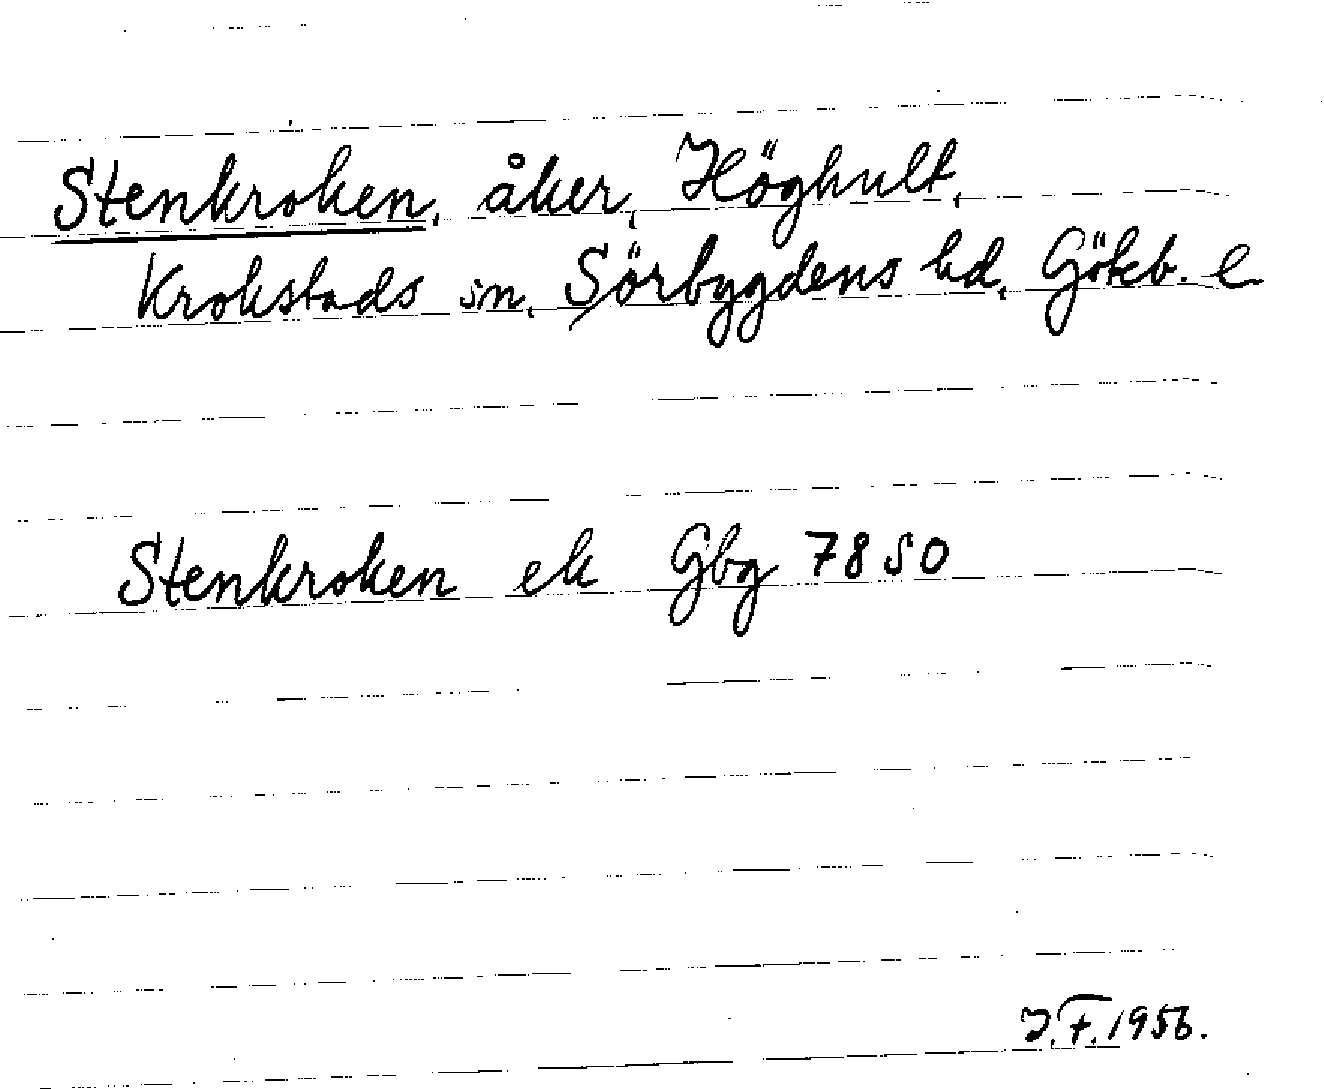 Stenkroken, åker, Höghult,
Krokstads sn, Sörbygdens hd, Göteb. l
Stenkroken ek Gbg 7850
J.F. 1956.